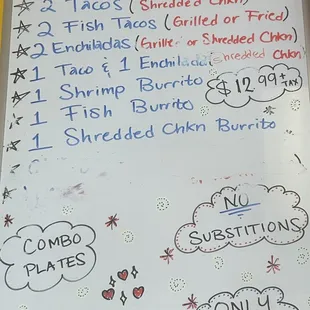 2 Tacos (Shredded Chkn)
2 Fish Tacos (Grilled or Fried)
2 Enchiladas (Grill or Shredded Chkn)
1 Taco & 1 Enchilada (Shredded Chkn)
1 Shrimp Burrito
$12.99 + TAX
1 Fish Burrito
1 Shredded Chkn Burrito
NO
SUBSTITIONS
COMBO
PLATES
ONLY